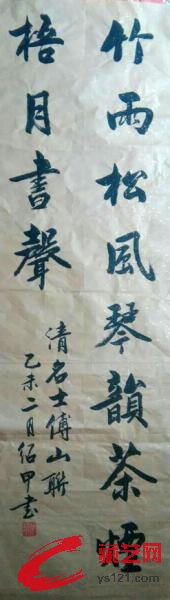 竹雨松風琴韻茶煙
梧月書聲
清名士傅山聯
乙未二月紹甲书
藏艺网
ys121.com